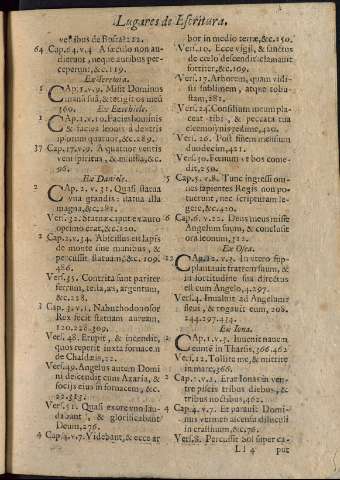 Lugares de Escritura.
vestibus de Bosra? 212.
64 Cap. 64. v. 4. A sæculo non au-
dierunt, neque auribus per-
ceperunt, &c. 119.
Ex Ieremia.
1 CAp. 1. v. 9. Misit Dominus
manū suā, & tetigit os meū
360. Ex Ezechiele.
1 CAp. 1. v. 10. Facies hominis
& facies leonis à dextris
ipsorum quatuor, &c. 189.
37 Cap. 17. v. 9. A quatuor ventis
veni spiritus, & insuffla, &c.
96.
Ex Daniele.
2 CAp. 2. v. 31. Quasi statua
vna grandis: statua illa
magna, &c. 281.
Vers. 32. Statuæ caput ex auro
optimo erat, &c. 120.
2 Cap. 2. v. 34. Abscissus est lapis
de monte sine manibus, &
percussit statuam, &c. 109.
486.
Vers. 35. Contrita sunt pariter
ferrum, testa, æs, argentum,
&c. 228.
3 Cap. 3. v. 1. Nabuchodonosor
Rex fecit statuam auream.
120. 228. 309.
Vers. 48. Erupit, & incendit,
quos reperit iuxta fornacem
de Chaldæis, 22.
Vers. 49. Angelus autem Domi
ni descendit cum Azaria, &
socijs eius in fornacem, &c.
22. 513.
Vers. 51. Quasi ex ore vno lau-
dabant, & glorificabant
Deum, 276.
4 Cap. 4. v. 7. Videbam, & ecce ar
bor in medio terræ, &c. 150.
Vers. 10. Ecce vigil, & sanctus
de cœlo descendit: clamavit
fortiter, &c. 109.
Vers. 17. Arborem, quam vidi-
sti sublimem, atque robu-
stam, 281.
Vers. 24. Consilium meum pla-
ceat tibi, & peccata tua
eleemosynis redime, 420.
Vers. 26. Post finem mensium
duodecim, 421.
Vers. 30. Fœnum vt bos come-
dit, 250.
5 Cap. 5. v. 8. Tunc ingressi om-
nes sapientes Regis non po-
tuerunt, nec scripturam le-
gere, &c. 420.
6 Cap. 6. v. 22. Deus meus misit
Angelum suum, & conclusit
ora leonum, 512.
Ex Osea.
12 CAp. 12. v. 3. In vtero sup-
plantauit fratrem suum, &
in fortitudine sua directus
est cum Angelo, 4. 297.
Vers. 4. Inualuit ad Angelum:
fleuit, & rogauit eum, 206.
244. 297. 434.
Ex Iona.
CAp. 1. v. 3. Inuenit nauem
euntē in Tharsis, 366. 462
Vers. 12. Tollite me, & mittite
in mare, 366.
2 Cap. 2. v. 1. Erat Ionas in ven-
tre piscis tribus diebus, &
tribus noctibus, 462.
4 Cap. 4. v. 7. Et parauit Domi-
nus vermem ascensu diluculi
in crastinum, &c. 76.
Vers. 8. Percussit sol super ca-
Ll 4 put